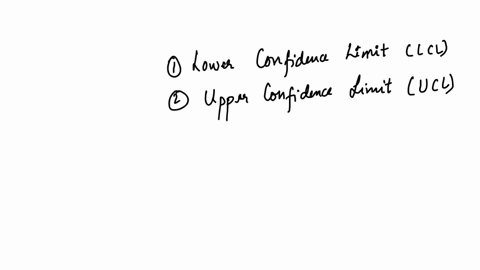 ① Lower Confidence Limit (LCL)
② Upper Confidence Limit (UCL)